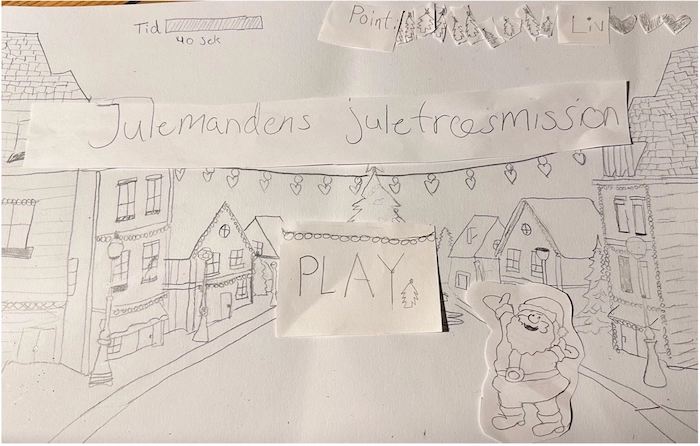 Tid
40 sek
Point:
Liv
Julemandens juletræsmission
PLAY